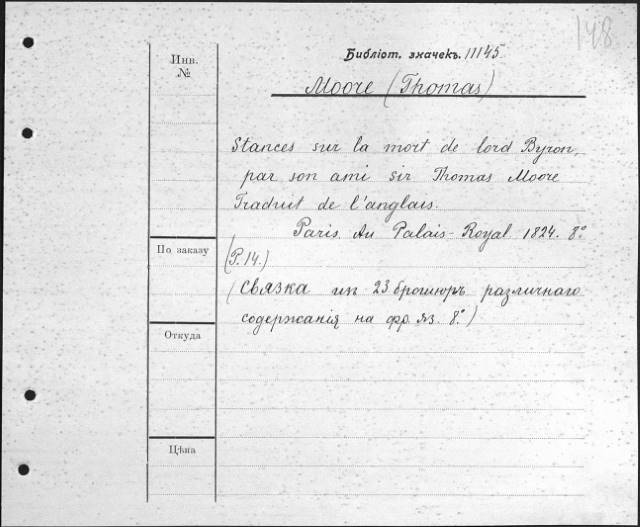 148
Инв.
№
Библіот. значекъ. 11145
Moore (Thomas)
Stances sur la mort de lord Byron,
par son ami sir Thomas Moore
Traduit de l'anglais.
Paris. Au Palais-Royal 1824. 8º
(P. 14.)
(Связка из 23 брошюръ различнаго
содержанія на фр. яз. 8º)
По заказу
Откуда
Цѣна